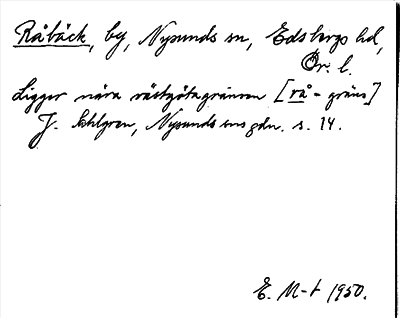 Råbäck, by, Nysunds sn, Edsbergs hd,
Ör. l.
Ligger nära västgötagränsen [rå - gräns]
J. Sahlgren, Nysunds sns gdn. s. 14.
E. M-t 1950.